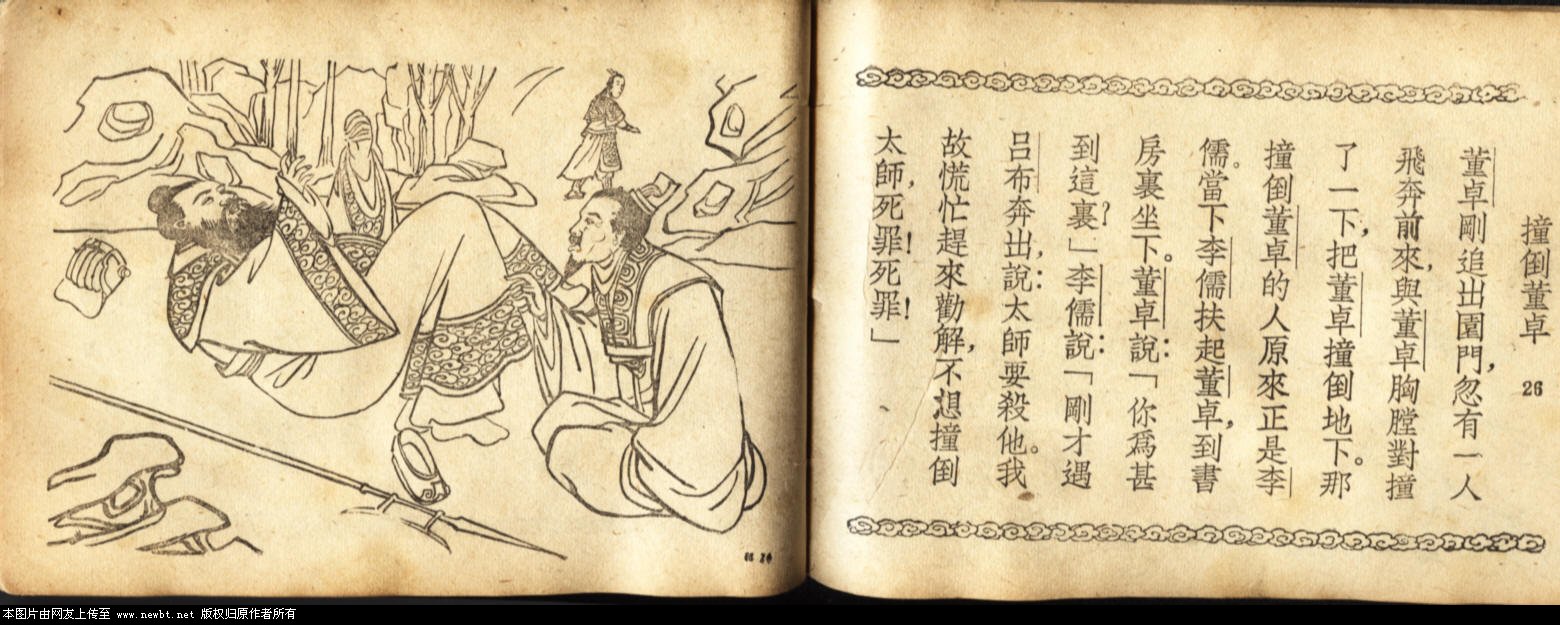 撞倒董卓 26
董卓剛追出園門,忽有一人
飛奔前來,與董卓胸膛對撞
了一下,把董卓撞倒地下。那
撞倒董卓的人原來正是李
儒。當下李儒扶起董卓,到書
房裏坐下。董卓說:「你爲甚
到這裏?」李儒說:「剛才遇
呂布奔出,說:太師要殺他。我
故慌忙趕來勸解,不想撞倒
太師,死罪!死罪!」
本图片由网友上传至 www.newbt.net 版权归原作者所有